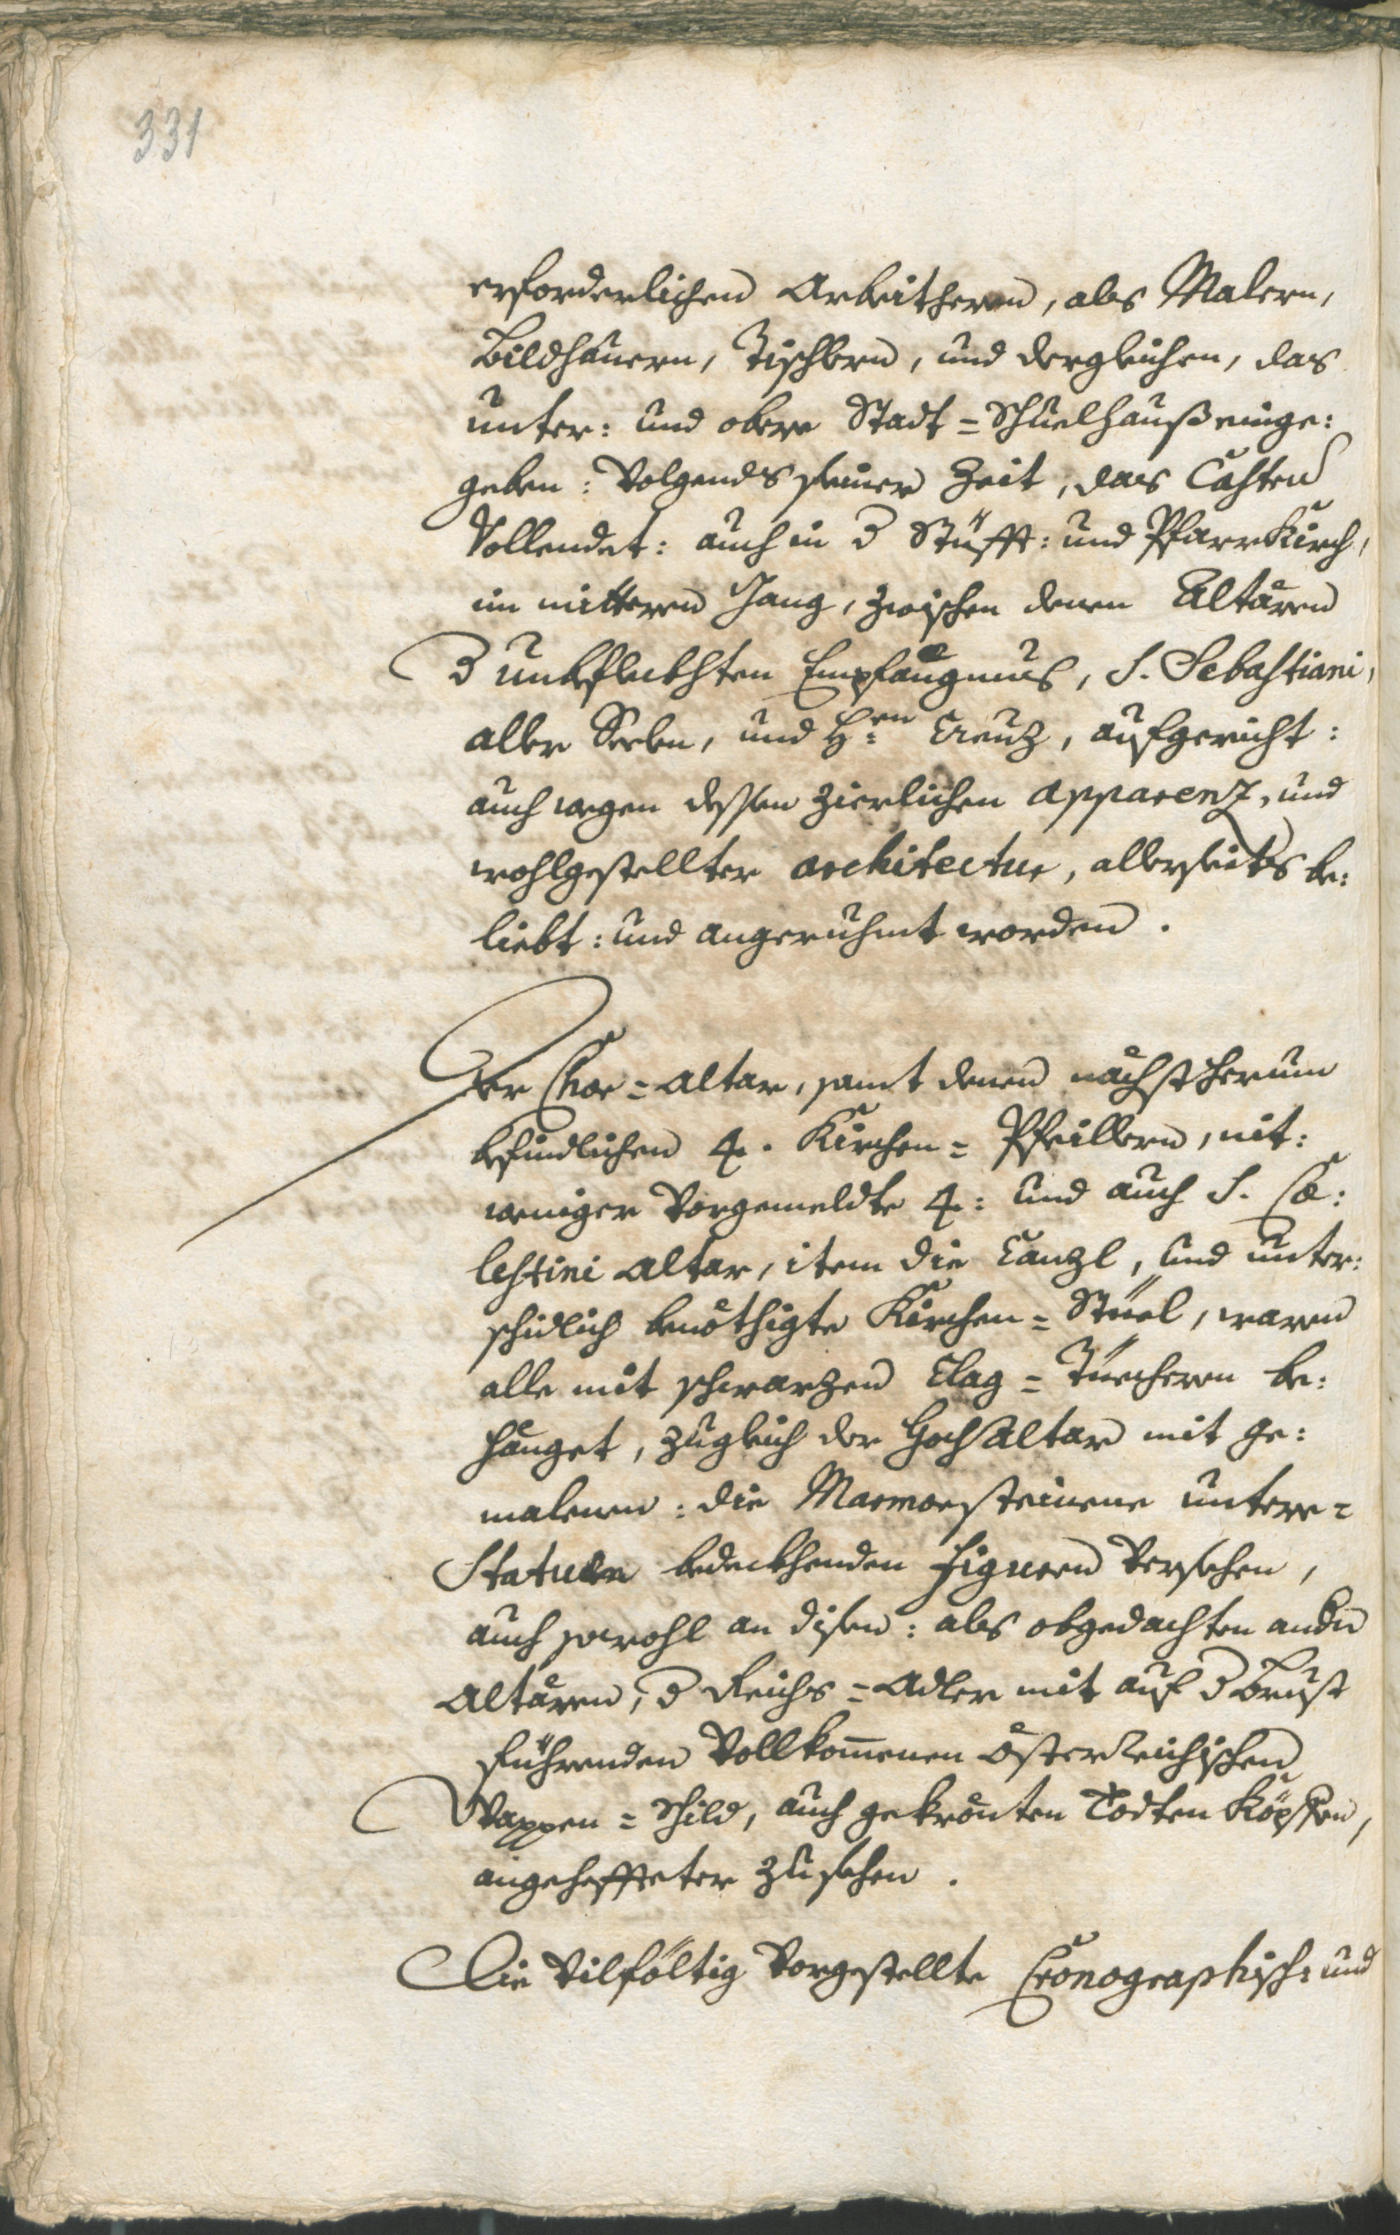 331
erforderlichen Arbeitheren, als Malern,
Bildhauern, Tischlern, und dergleichen, das
unter: und obere Stadt=Schuelhauß einge:
geben: Volgends seiner Zeit, das Casten
Vollendet: auch in d Stüfft: und PfarrKirch,
im mitteren Gang, zwischen denen Altären
d unbeflekhten Empfängnus, S. Sebastiani,
aller Seelen, und H:en Creuz, aufgericht:
auch wegen dessen zierlichen apparenz, und
wohlgestellter architectur, allerseits be:
liebt: und angeruhmt worden.
Der Chor=altar, samt denen nächst herum
befindlichen 4. Kirchen=Pfeillern, nit:
weniger Vorgemeldte 4: und auch S. Cœ:
lestini altar, item die Canzl, und unter:
schidlich benöthigte Kirchen=Stüel, waren
alle mit schwarzen Clag=Tüecheren be:
hänget, zugleich der Hochaltar mit ge:
malenen: die Marmorsteinene untere=
Statuen bedekhenden Figuren Versehen,
auch sowohl an disen: als obgedachten andn
Altären, d Reichs=Adler mit auf d Brust
führenden Vollkommenen österreichischen
Wappen=Schild, auch gekrönten Todten Köpfen,
angeheffteter zu sehen.
Die Vilfältig Vorgestellte Cronographisch: und